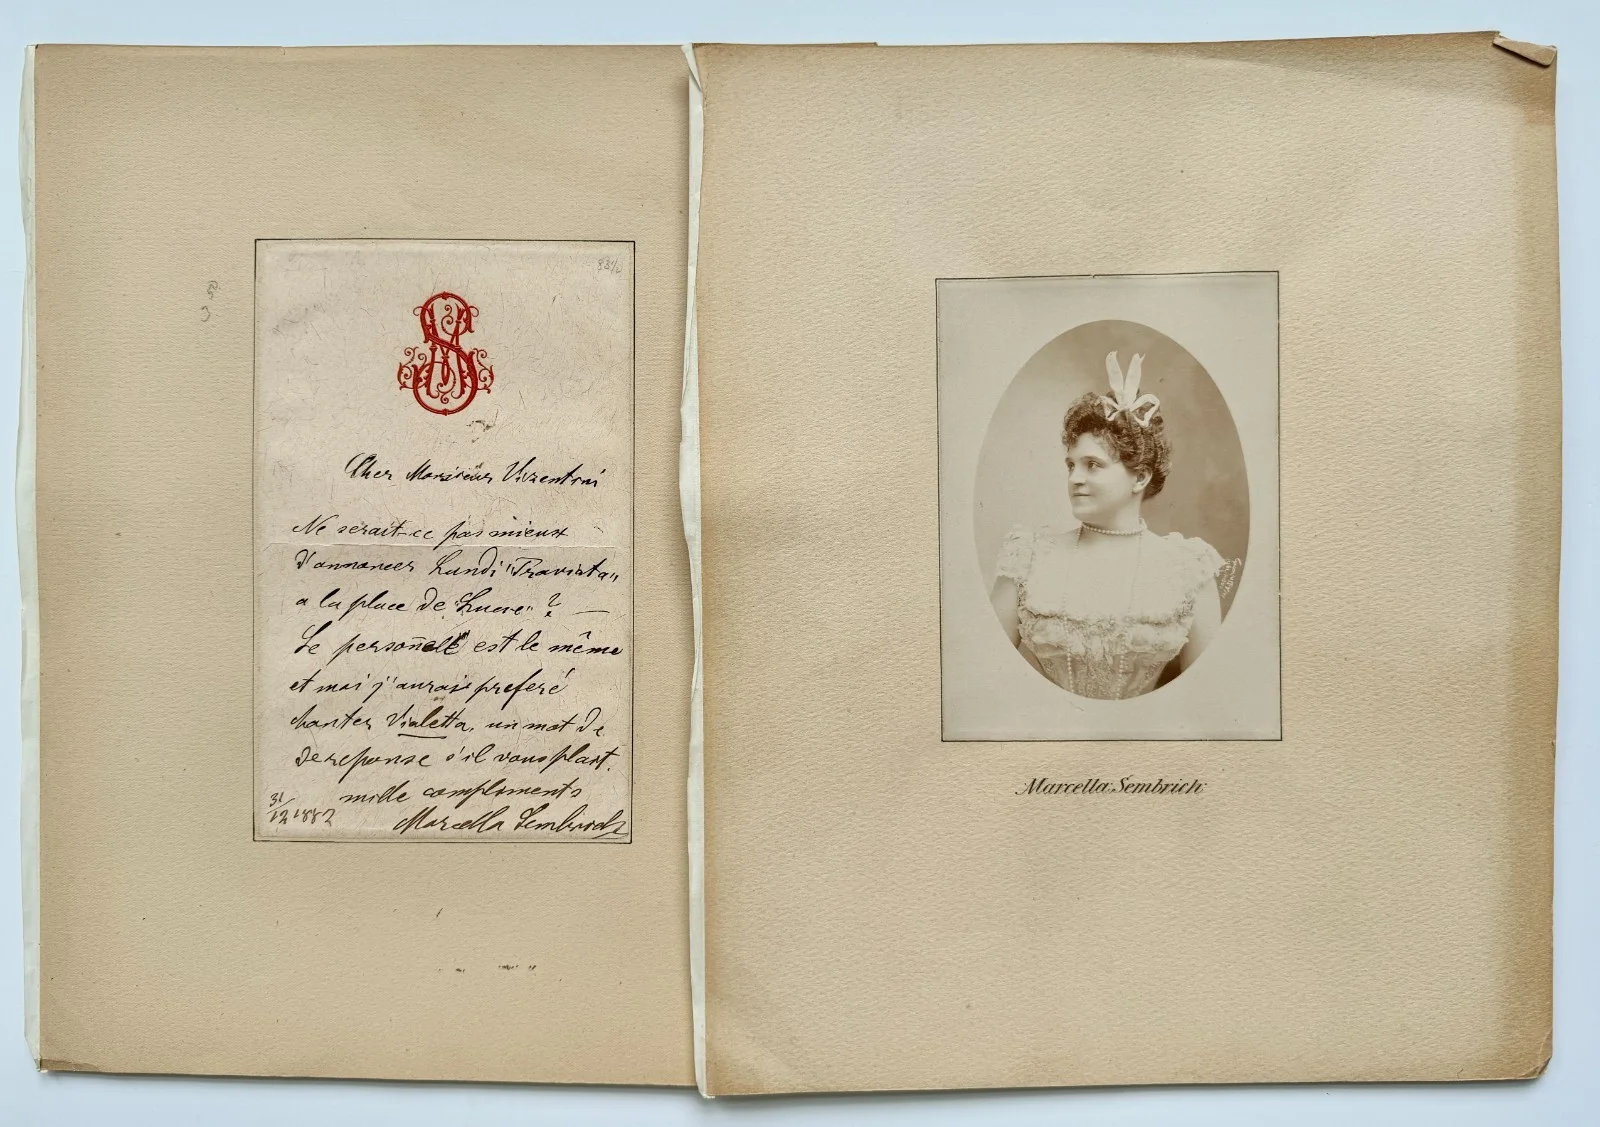 MS
Cher Monsieur Vizentini
Ne serait-ce pas mieux
d'annoncer Lundi "Traviata"
a la place de "Lucie" ? —
Le personell est le même
et moi j'aurais preferé
chanter Violetta, un mot de
de reponse s'il vous plait.
mille compliments
31/12 1882
Marcella Sembrich
Marcella Sembrich